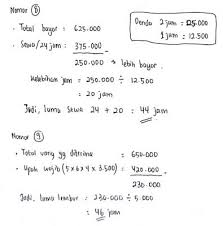 Nomor ⑧
Denda 2 jam = 25.000
1 jam = 12.500
• Total bayar = 625.000
• Sewa/24 jam = 375.000
250.000 → lebih bayar
Kelebihan jam = 250.000 ÷ 12.500
= 20 jam
Jadi, lama sewa 24 + 20 = 44 jam
Nomor ⑨
• Total uang yg diterima = 650.000
• Upah wajib (5×6×4×3.500) = 420.000
230.000
Jadi, lama lembur = 230.000 ÷ 5.000
= 46 jam